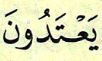 يَعْتَدُونَ